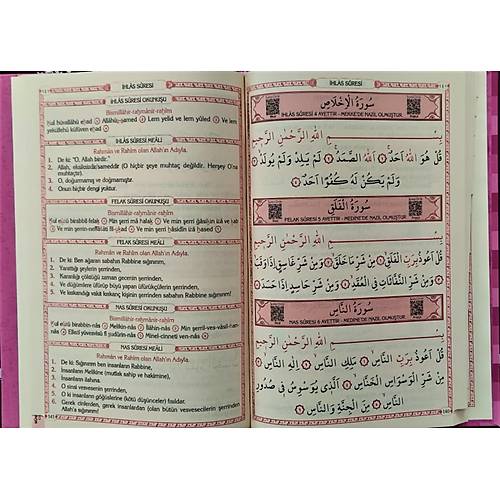 İHLÂS SÛRESİ
İHLÂS SÛRESİ OKUNUŞU
Bismillâhir-raḥmânir-raḥîm
Ḳul hüvallâhü eḥad Allâhüṣ-ṣamed Lem yelid ve lem yûled Ve lem
yekûllehû küfüven eḥad
İHLÂS SÛRESİ MEÂLİ
Rahmân ve Rahîm olan Allah'ın Adıyla.
1. De ki: "O, Allah birdir."
2. Allah, eksiksizdir, sameddir (O hiçbir şeye muhtaç değildir. Herşey O'na
muhtaçtır).
3. O, doğurmamış ve doğmamıştır.
4. Onun hiçbir dengi yoktur.
FELAK SÛRESİ OKUNUŞU
Bismillâhir-raḥmânir-raḥîm
FELAK SÛRESİ MEÂLİ
Rahmân ve Rahîm olan Allah'ın Adıyla.
1. De ki: Ben ağaran sabahın Rabbine sığınırım!
2. Yarattığı şeylerin şerrinden,
3. Karanlığı çöktüğü zaman gecenin şerrinden,
4. Ve düğümlere üfürüp büyü yapan üfürükçülerin şerrinden,
5. Ve kıskandığı vakit kıskanç kişinin şerrinden sabahın Rabbine sığınırım!
NAS SÛRESİ OKUNUŞU
Bismillâhir-raḥmânir-raḥîm
NAS SÛRESİ MEÂLİ
Rahmân ve Rahîm olan Allah'ın Adıyla.
1. De ki: Sığınırım ben insanların Rabbine,
2. İnsanların Melikine (mutlak sahip ve hakimine),
3. İnsanların ilahına.
4. O sinsi vesvesenin şerrinden,
5. O ki insanların göğüslerine (kötü düşünceler) fısıldar.
6. Gerek cinlerden, gerek insanlardan (olan bütün vesvesecilerin şerrinden
Allah'a sığınırım!)
İHLÂS SÛRESİ
سُورَةُ الْاِخْلَاصِ
İHLÂS SÛRESİ 4 AYETTİR - MEKKE'DE NAZİL OLMUŞTUR.
بِسْمِ اللّٰهِ الرَّحْمٰنِ الرَّحِيمِ
قُلْ هُوَ اللّٰهُ اَحَدٌ ۝ اَللّٰهُ الصَّمَدُ ۝ لَمْ يَلِدْ وَلَمْ يُولَدْ ۝
وَلَمْ يَكُنْ لَهُ كُفُوًا اَحَدٌ ۝
سُورَةُ الْفَلَقِ
FELAK SÛRESİ 5 AYETTİR - MEDİNE'DE NAZİL OLMUŞTUR.
بِسْمِ اللّٰهِ الرَّحْمٰنِ الرَّحِيمِ
قُلْ اَعُوذُ بِرَبِّ الْفَلَقِ ۝ مِنْ شَرِّ مَا خَلَقَ ۝ وَمِنْ شَرِّ غَاسِقٍ اِذَا وَقَبَ ۝
وَمِنْ شَرِّ النَّفَّاثَاتِ فِي الْعُقَدِ ۝ وَمِنْ شَرِّ حَاسِدٍ اِذَا حَسَدَ ۝
سُورَةُ النَّاسِ
NAS SÛRESİ 6 AYETTİR - MEDİNE'DE NAZİL OLMUŞTUR.
بِسْمِ اللّٰهِ الرَّحْمٰنِ الرَّحِيمِ
قُلْ اَعُوذُ بِرَبِّ النَّاسِ ۝ مَلِكِ النَّاسِ ۝ اِلٰهِ النَّاسِ ۝
مِنْ شَرِّ الْوَسْوَاسِ الْخَنَّاسِ ۝ اَلَّذِي يُوَسْوِسُ فِي صُدُورِ
النَّاسِ ۝ مِنَ الْجِنَّةِ وَالنَّاسِ ۝